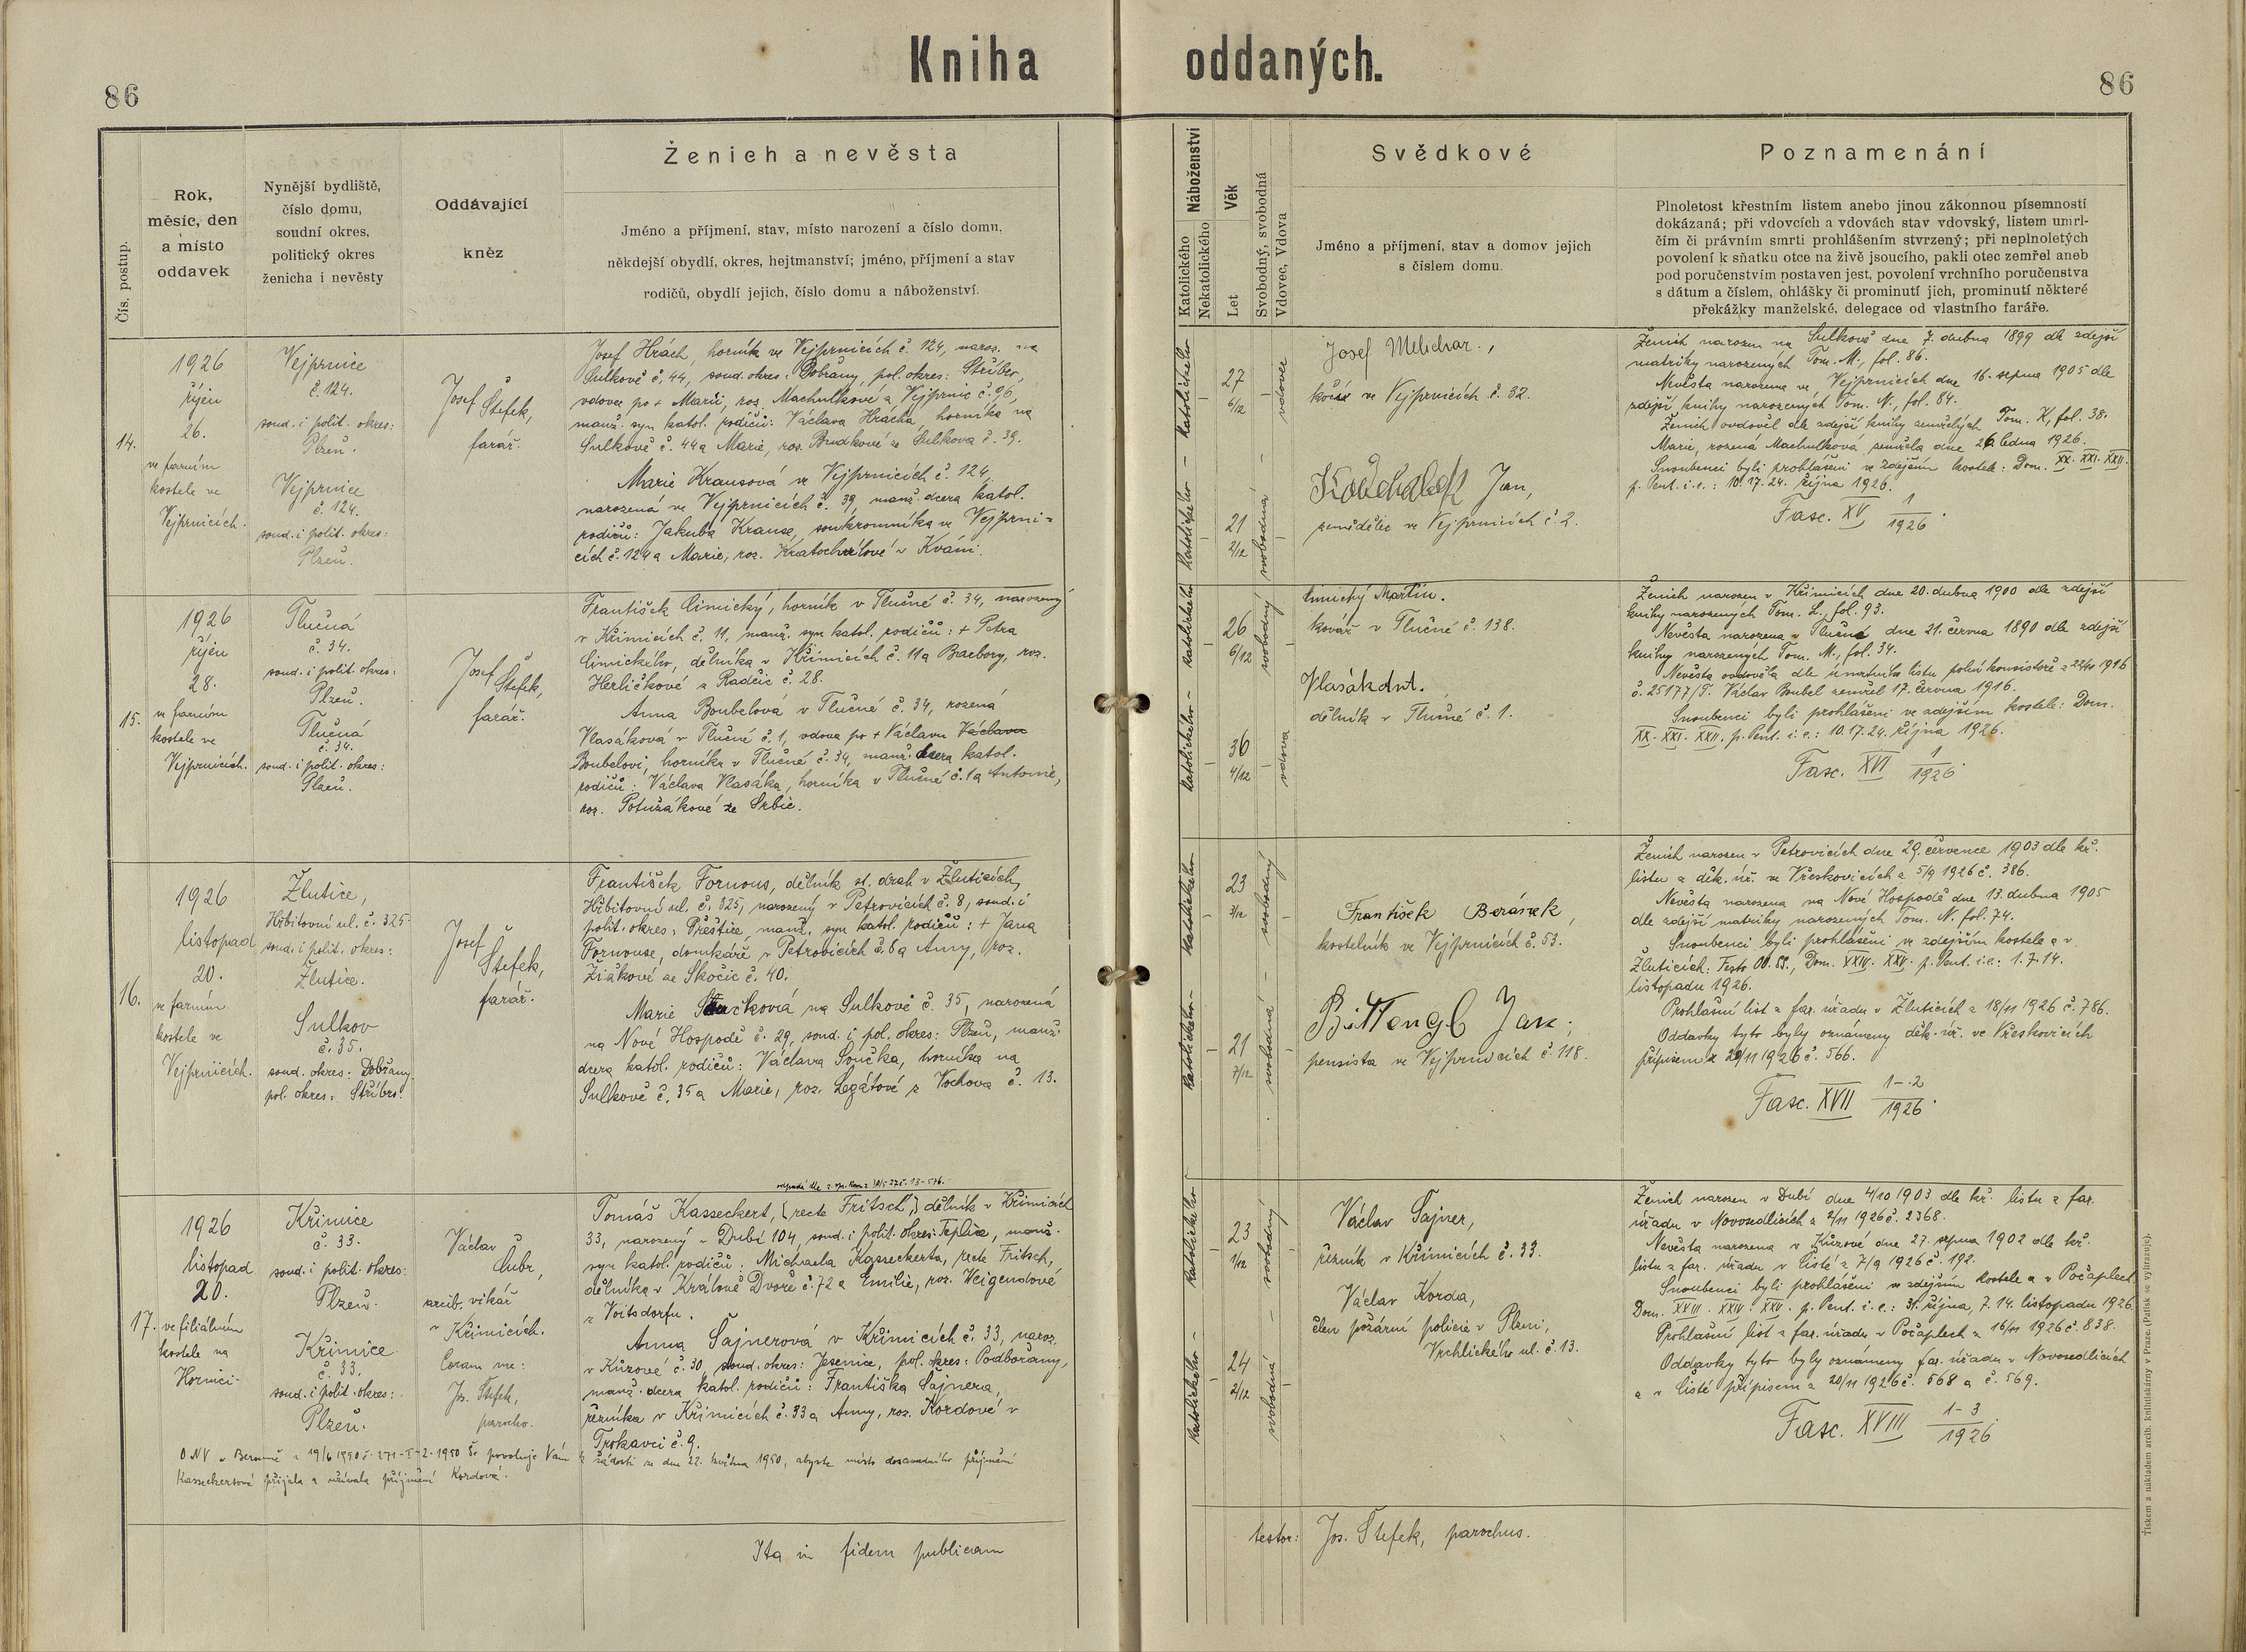 Kniha oddaných.
86
86
Čís. postup.
Rok,
měsíc, den
a místo
oddavek
Nynější bydliště,
číslo domu,
soudní okres,
politický okres
ženicha i nevěsty
Oddávající
kněz
Ženich a nevěsta
Jméno a příjmení, stav, místo narození a číslo domu,
někdejší obydlí, okres, hejtmanství; jméno, příjmení a stav
rodičů, obydlí jejich, číslo domu a náboženství.
Náboženství
Katolického
Nekatolického
Věk
Let
Svobodný, svobodná
Vdovec, Vdova
Svědkové
Jméno a příjmení, stav a domov jejich
s číslem domu.
Poznamenání
Plnoletost křestním listem anebo jinou zákonnou písemností
dokázaná; při vdovcích a vdovách stav vdovský, listem umrl-
čím či právním smrti prohlášením stvrzený; při neplnoletých
povolení k sňatku otce na živě jsoucího, pakli otec zemřel aneb
pod poručenstvím postaven jest, povolení vrchního poručenstva
s dátum a číslem, ohlášky či prominutí jich, prominutí některé
překážky manželské, delegace od vlastního faráře.
14.
1926
říjen
26.
ve farním
kostele ve
Vejprnicích.
Vejprnice
č. 124.
soud. i polit. okres:
Plzeň.
Vejprnice
č. 124.
soud. i polit. okres:
Plzeň.
Josef
Štefek,
farář.
Josef Hrách, horník ve Vejprnicích č. 124, naroz. na
Sulkově č. 44, soud. okres: Dobřany, pol. okres: Stříbro,
vdovec po + Marii, roz. Machulkové z Vejprnic č. 96,
manž. syn katol. rodičů: Václava Hrácha, horníka na
Sulkově č. 44 a Marie, roz. Budkové ze Sulkova č. 39.
Marie Krausová ve Vejprnicích č. 124,
narozená ve Vejprnicích č. 39, manž. dcera katol.
rodičů: Jakuba Krause, soukromníka ve Vejprni=
cích č. 124 a Marie, roz. Kratochvílové v
katolického
27
6/12
vdovec
katolického
21
2/12
svobodná
Josef Melichar.,
kočí ve Vejprnicích č. 32.
Jan,
zemědělec ve Vejprnicích č. 2.
Ženich narozen na Sulkově dne 7. dubna 1899 dle zdejší
matriky narozených Tom. M., fol. 86.
Nevěsta narozena ve Vejprnicích dne 16. srpna 1905 dle
zdejší knihy narozených Tom. N., fol. 84.
Ženich ovdověl dle zdejší knihy zemřelých Tom. K, fol. 38.
Marie, rozená Machulková zemřela dne 26. ledna 1926.
Snoubenci byli prohlášeni ve zdejším kostele: Dom. XX. XXI. XXII.
p. Pent. i. e.: 10. 17. 24. října 1926.
Fasc. XV 1/1926.
15.
1926
říjen
28.
ve farním
kostele ve
Vejprnicích.
Tlučná
č. 34.
soud. i polit. okres:
Plzeň.
Tlučná
č. 34.
soud. i polit. okres:
Plzeň.
Josef
Štefek,
farář.
František Cimický, horník v Tlučné č. 34, narozený
v Křimicích č. 11, manž. syn katol. rodičů: + Petra
Cimického, dělníka v Křimicích č. 11 a Barbory, roz.
Herličkové z Radčic č. 28.
Anna Boubelová v Tlučné č. 34, rozená
Vlasáková v Tlučné č. 1, vdova po + Václavu Václava
Boubelovi, horníka v Tlučné č. 34, manž. dcera katol.
rodičů: Václava Vlasáka, horníka v Tlučné č. 1 a Antonie,
roz. Potužákové ze Srbic.
katolického
26
6/12
svobodný
katolického
36
4/12
vdova
Cimický Martin.
kovář v Tlučné č. 138.
Vlasák Ant.
dělník v Tlučné č. 1.
Ženich narozen v Křimicích dne 20. dubna 1900 dle zdejší
knihy narozených Tom. L., fol. 93.
Nevěsta narozena v Tlučné dne 21. června 1890 dle zdejší
knihy narozených Tom. M., fol. 34.
Nevěsta ovdověla dle úmrtního listu polní konsistoře z 1916
č. 25177/T. Václav Boubel zemřel 17. června 1916.
Snoubenci byli prohlášeni ve zdejším kostele: Dom.
XX. XXI. XXII. p. Pent. i. e.: 10. 17. 24. října 1926.
Fasc. XVI 1/1926.
16.
1926
listopad
20.
ve farním
kostele ve
Vejprnicích.
Žlutice,
Hřbitovní ul. č. 325
soud. i polit. okres:
Žlutice.
Sulkov
č. 35.
soud. okres: Dobřany
pol. okres: Stříbro.
Josef
Štefek,
farář.
František Fornous, dělník st. drah v Žluticích,
Hřbitovní ul. č. 325, narozený v Petrovicích č. 8, soud. i
polit. okres: Přeštice, manž. syn katol. rodičů: + Jana
Fornouse, domkáře v Petrovicích č. 6 a Anny, roz.
Žiákové ze Skočic č. 40.
Marie Součková na Sulkově č. 35, narozená
na Nové Hospodě č. 29, soud. i pol. okres: Plzeň, manž.
dcera katol. rodičů: Václava Součka, horníka na
Sulkově č. 35 a Marie, roz. Legátové z Vochova č. 13.
katolického
23
3/12
svobodný
katolického
21
7/12
svobodná
František Beránek,
kostelník ve Vejprnicích č. 53.
Bittengl Jan;
pensista ve Vejprnicích č. 118.
Ženich narozen v Petrovicích dne 29. července 1903 dle kř.
listu z děk. úř. ve Vřeskovicích z 5/9 1926 č. 386.
Nevěsta narozena na Nové Hospodě dne 13. dubna 1905
dle zdejší matriky narozených Tom. N. fol. 74.
Snoubenci byli prohlášeni ve zdejším kostele a v
Žluticích: Festo OO. SS., Dom. XXIV. XXV. p. Pent. i. e.: 1. 7. 14.
listopadu 1926.
Prohlašní list z far. úřadu v Žluticích z 18/11 1926 č. 786.
Oddavky tyto byly oznámeny děk. úř. ve Vřeskovicích
přípisem z 20/11 1926 č. 566.
Fasc. XVII 1-2/1926.
17.
1926
listopad
20.
ve filiálním
kostele na
Křimice
č. 33.
soud. i polit. okres:
Plzeň.
Křimice
č. 33.
soud. i polit. okres:
Plzeň.
Václav
Cubr,
arcib. vikář
v Křimicích.
Coram me:
Jos. Štefek,
parocho.
Tomáš Kasseckert, (recte Fritsch,) dělník v Křimicích
33, narozený v Dubí 104, soud. i polit. okres: Teplice, manž.
syn katol. rodičů: Michaela Kasseckerta, recte Fritsch,
dělníka v Králově Dvoře č. 72 a Emilie, roz. Weigendové
z Voitsdorfu.
Anna Šajnerová v Křimicích č. 33, naroz.
v Kůzové č. 30, soud. okres: Jesenice, pol. okres: Podbořany,
manž. dcera katol. rodičů: Františka Šajnera,
řezníka v Křimicích č. 33 a Anny, roz. Kordové v
Trokavci č. 9.
ONV v Berouně z 19/6 1950 povoluje Vám k žádosti ze dne 22. května 1950, abyste místo dosavadního příjmení
Kasseckertová přijala a užívala příjmení Kordová.
katolického
23
1/12
svobodný
katolického
24
2/12
svobodná
Václav Šajner,
řezník v Křimicích č. 33.
Václav Korda,
člen požární policie v Plzni,
Vrchlického ul. č. 13.
Ženich narozen v Dubí dne 4/10 1903 dle kř. listu z far.
úřadu v Novosedlicích z 2/11 1926 č. 2368.
Nevěsta narozena v Kůzové dne 27. srpna 1902 dle kř.
listu z far. úřadu v Čisté z 7/9 1926 č. 192.
Snoubenci byli prohlášeni ve zdejším kostele a v Počaplech
Dom. XXIII. XXIV. XXV. p. Pent. i. e.: 31. října, 7. 14. listopadu 1926.
Prohlašní list z far. úřadu v Počaplech z 16/11 1926 č. 838.
Oddavky tyto byly oznámeny far. úřadu v Novosedlicích
a v Čisté přípisem z 20/11 1926 č. 568 a č. 569.
Fasc. XVIII 1-3/1926
Ita in fidem publicam
testor: Jos. Štefek, parochus.
Tiskem a nákladem arcib. knihtiskárny v Praze. (Patisk se vyhrazuje).